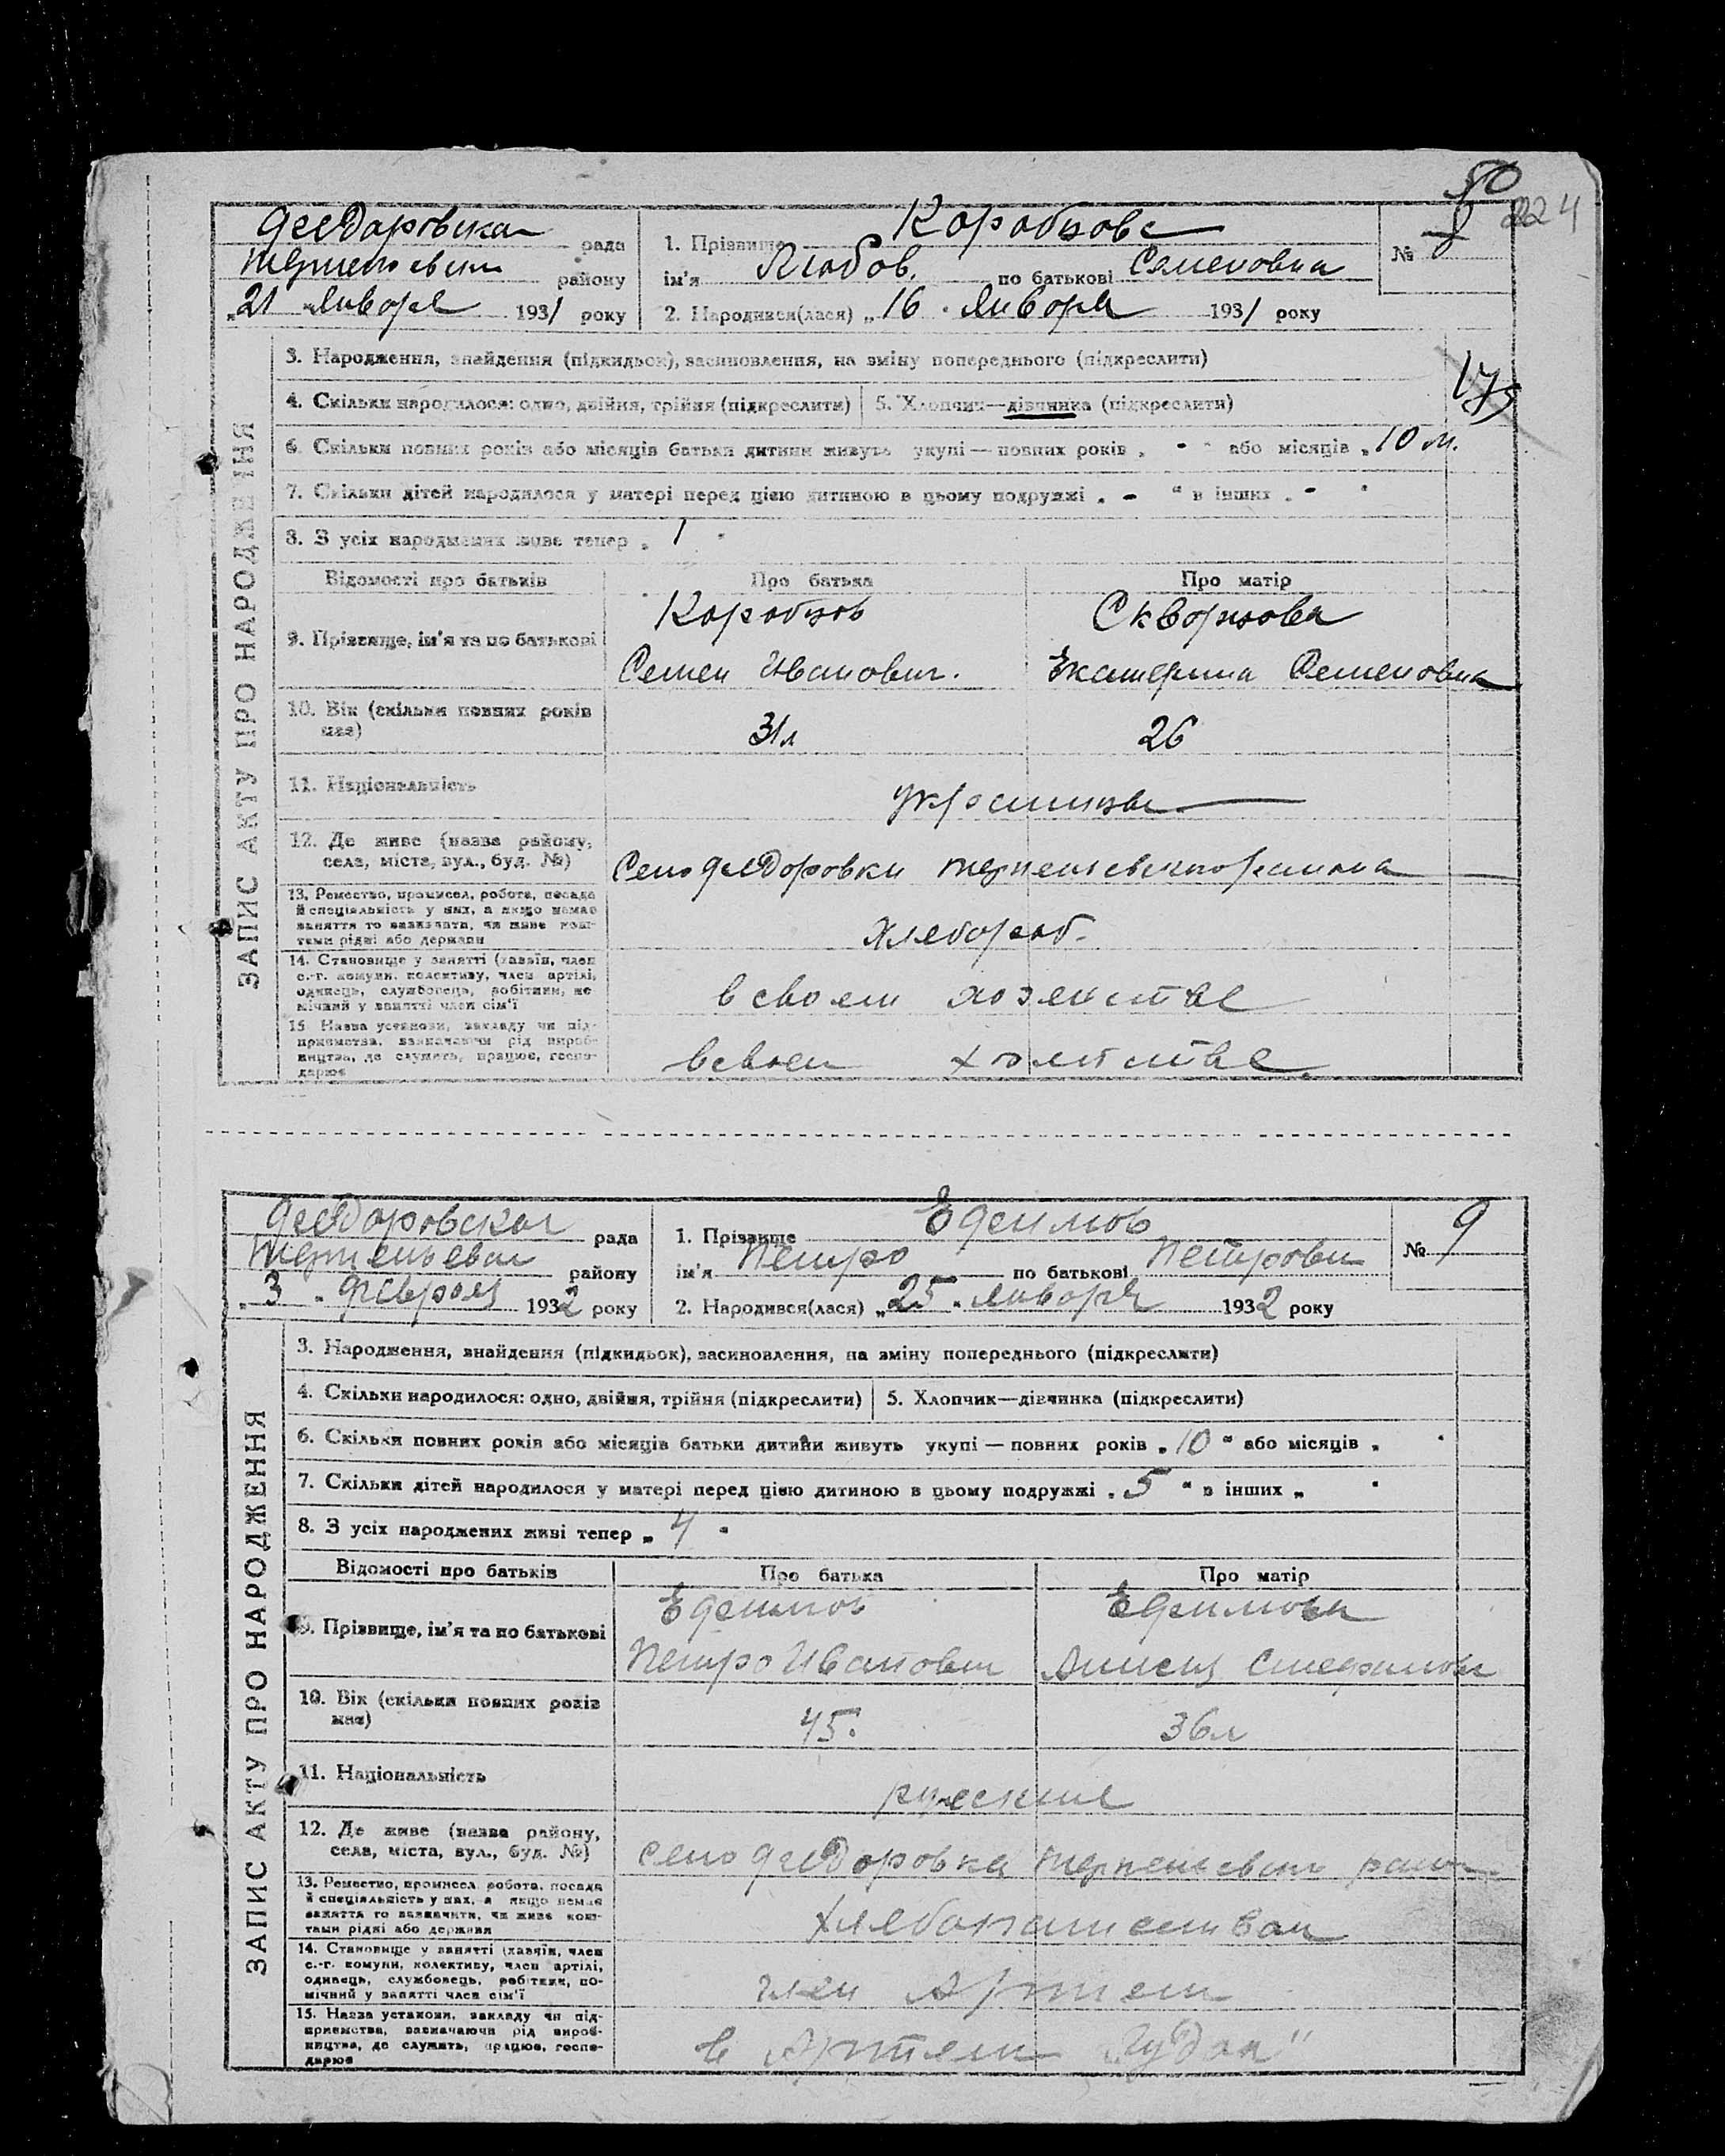 50
224
Федоровская рада
Терпеньевский району
„21 „ Января 1931 року
1. Прізвище Коробцова
ім'я Любов. по батькові Семеновна
2. Народився(лася) „16 „ Января 1931 року
№ 8
175
ЗАПИС АКТУ ПРО НАРОДЖЕННЯ
3. Народження, знайдення (підкидьок), засиновлення, на зміну попереднього (підкреслити)
4. Скільки народилося: одно, двійня, трійня (підкреслити) 5. Хлопчик—дівчинка (підкреслити)
6. Скільки повних років або місяців батьки дитини живуть укупі — повних років „ - “ або місяців „10 м.
7. Скільки дітей народилося у матері перед цією дитиною в цьому подружжі „ - “ в інших „ - “
8. З усіх народжених живе тепер „ 1 “
Відомості про батьків Про батька Про матір
9. Прізвище, ім'я та по батькові
Коробцов Скворцова
Семен Иванович. Екатерина Семеновна
10. Вік (скільки повних років має) 31л 26
11. Національність украинцы
12. Де живе (назва району, села, міста, вул., буд. №) Село Федоровки Терпеньевского района
13. Ремество, промисел, робота, посада й спеціяльність у них, а якщо немає заняття то зазначити, чи живе коштами рідні або держави
Хлебороб.
14. Становище у занятті (хазяїн, член с.-г. комуни, колективу, член артілі, одинець, службовець, робітник, помічний у занятті член сім'ї
в своем хозяистве
15. Назва установи, закладу чи підприємства, зазначаючи рід виробництва, де служить, працює, господарює
в своем хозяистве
Федоровская рада
Терпеньевский району
„ 3 „ Февраля 1932 року
1. Прізвище Ефимов
ім'я Петро по батькові Петрович
2. Народився(лася) „25 „ Января 1932 року
№ 9
ЗАПИС АКТУ ПРО НАРОДЖЕННЯ
3. Народження, знайдення (підкидьок), засиновлення, на зміну попереднього (підкреслити)
4. Скільки народилося: одно, двійня, трійня (підкреслити) 5. Хлопчик—дівчинка (підкреслити)
6. Скільки повних років або місяців батьки дитини живуть укупі — повних років „10 “ або місяців „ “
7. Скільки дітей народилося у матері перед цією дитиною в цьому подружжі „5 “ в інших „ “
8. З усіх народжених живі тепер „ 4 “
Відомості про батьків Про батька Про матір
9. Прізвище, ім'я та по батькові
Ефимов Ефимова
Петро Иванович Стефанов
10. Вік (скільки повних років має) 45. 36л
11. Національність русские
12. Де живе (назва району, села, міста, вул., буд. №) село Федоровка Терпеньевск район
13. Ремество, промисел, робота, посада й спеціяльність у них, а якщо немає заняття то зазначити, чи живе коштами рідні або держави
Хлебопашеством
14. Становище у занятті (хазяїн, член с.-г. комуни, колективу, член артілі, одинець, службовець, робітник, помічний у занятті член сім'ї
член Артели
15. Назва установи, закладу чи підприємства, зазначаючи рід виробництва, де служить, працює, господарює
в Артели